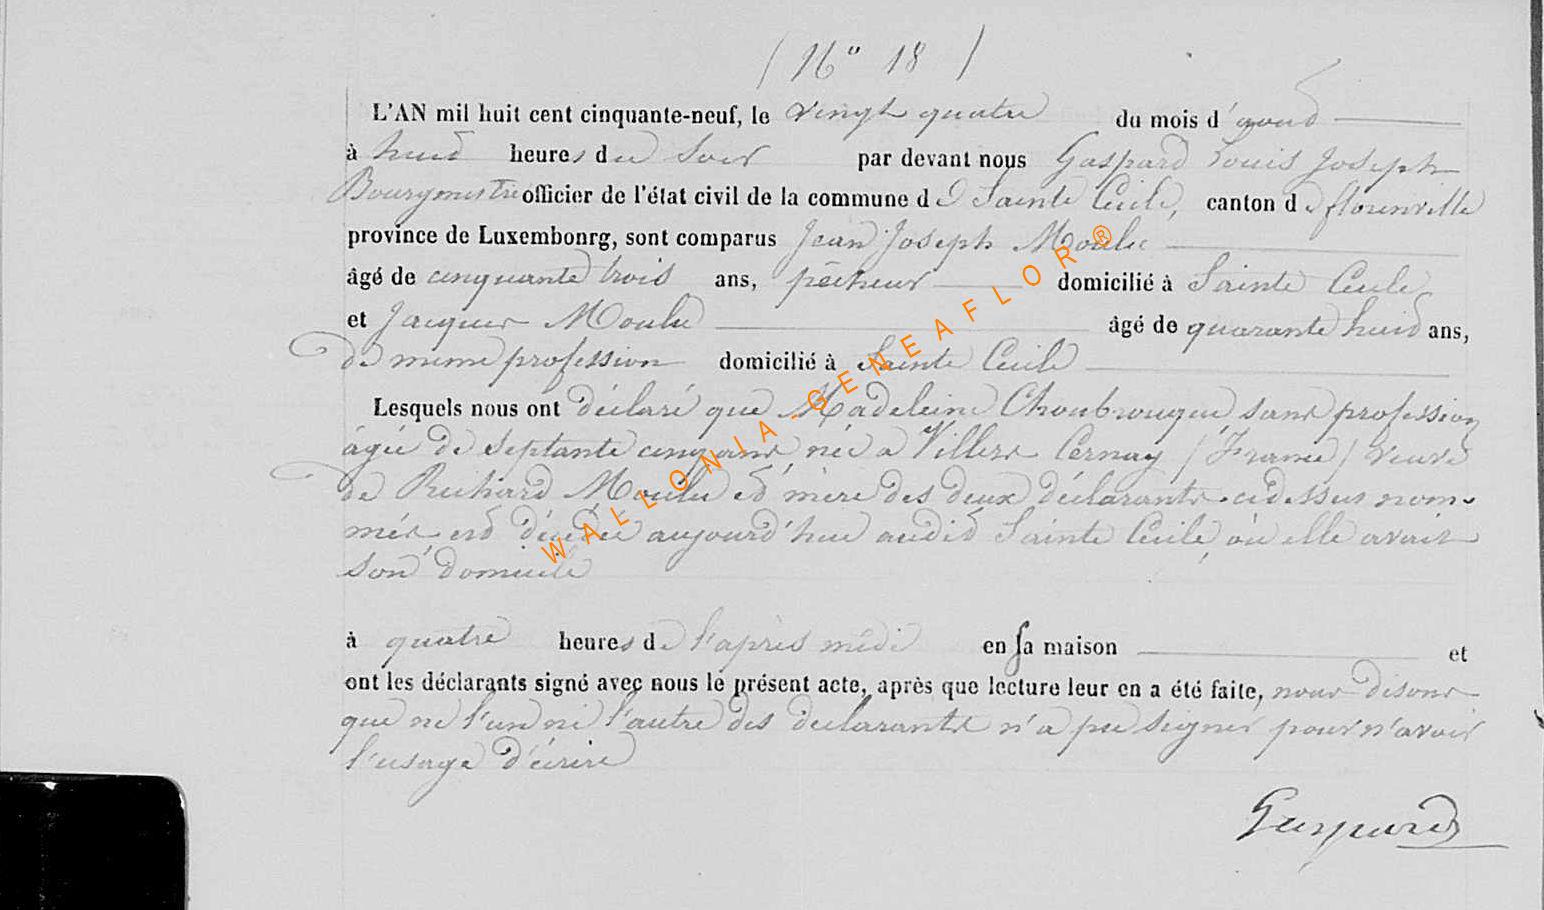 ( N° 18 )
L'AN mil huit cent cinquante-neuf, le vingt quatre du mois d'aout
à huit heures du soir par devant nous Gaspard Louis Joseph
Bourgmestre officier de l'état civil de la commune de Sainte Cecile, canton de florenville
province de Luxembonrg, sont comparus Jean Joseph Moulu
âgé de cinquante trois ans, pêcheur domicilié à Sainte Cecile
et Jacques Moulu âgé de quarante huit ans,
de meme profession domicilié à Sainte Cecile
Lesquels nous ont déclaré que Madeleine sans profession
agée de septante cinq ans née a Villers Cernay (France) veuve
de Richard Moulu et mère des deux déclarants ci dessus nom-
més est décédée aujourd'hui audit Sainte Cecile, où elle avait
son domicile
à quatre heures de l'après midi en sa maison et
ont les déclarants signé avec nous le présent acte, après que lecture leur en a été faite, nous disons
que ne l'un ni l'autre des declarants n'a pu signer pour n'avoir
l'usage d'écrire
Gaspard
WALLONIA-GENEAFLOR®